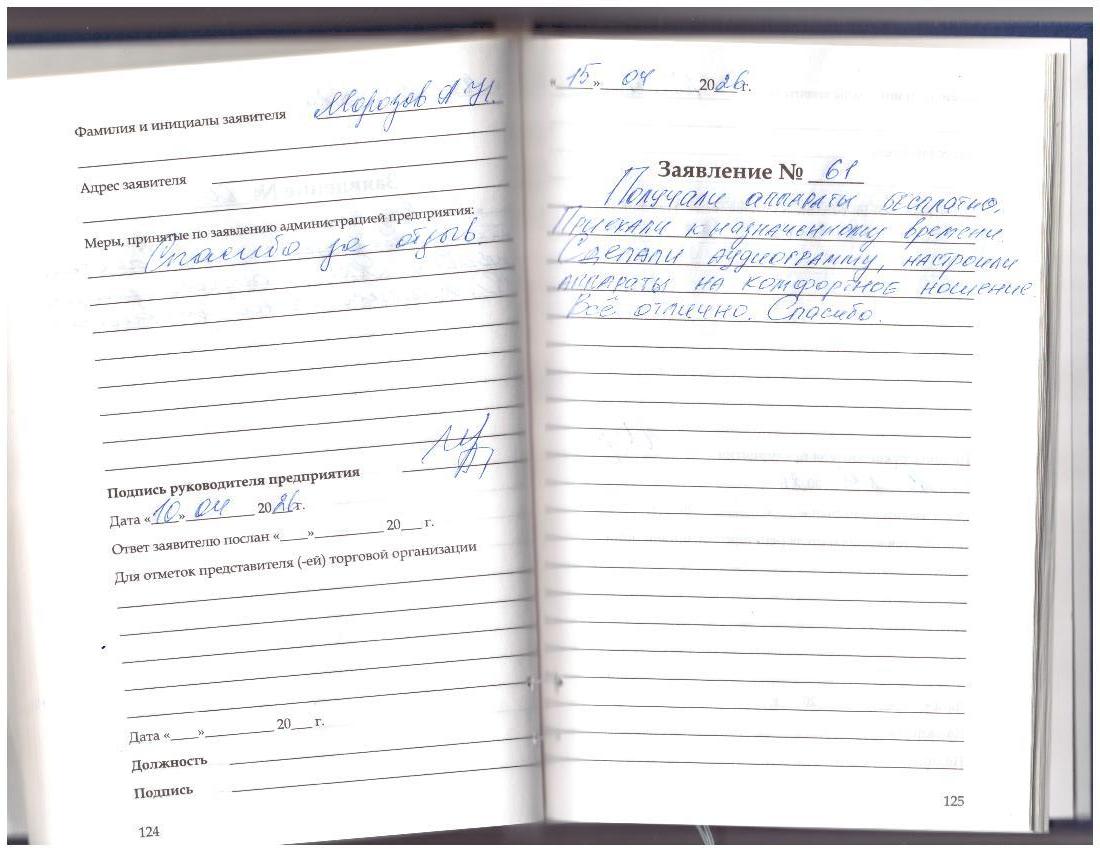 Фамилия и инициалы заявителя Морозов А Н.
Адрес заявителя
Меры, принятые по заявлению администрацией предприятия:
Спасибо за отзыв.
Подпись руководителя предприятия
Дата «10» 04 2026г.
Ответ заявителю послан «____»__________ 20___ г.
Для отметок представителя (-ей) торговой организации
Дата «____»__________ 20___ г.
Должность
Подпись
124
«15» 04 2026г.
Заявление № 61
Получали аппараты бесплатно.
Приехали к назначенному времени.
Сделали аудиограмму, настроили
аппараты на комфортное ношение.
Всё отлично. Спасибо.
125